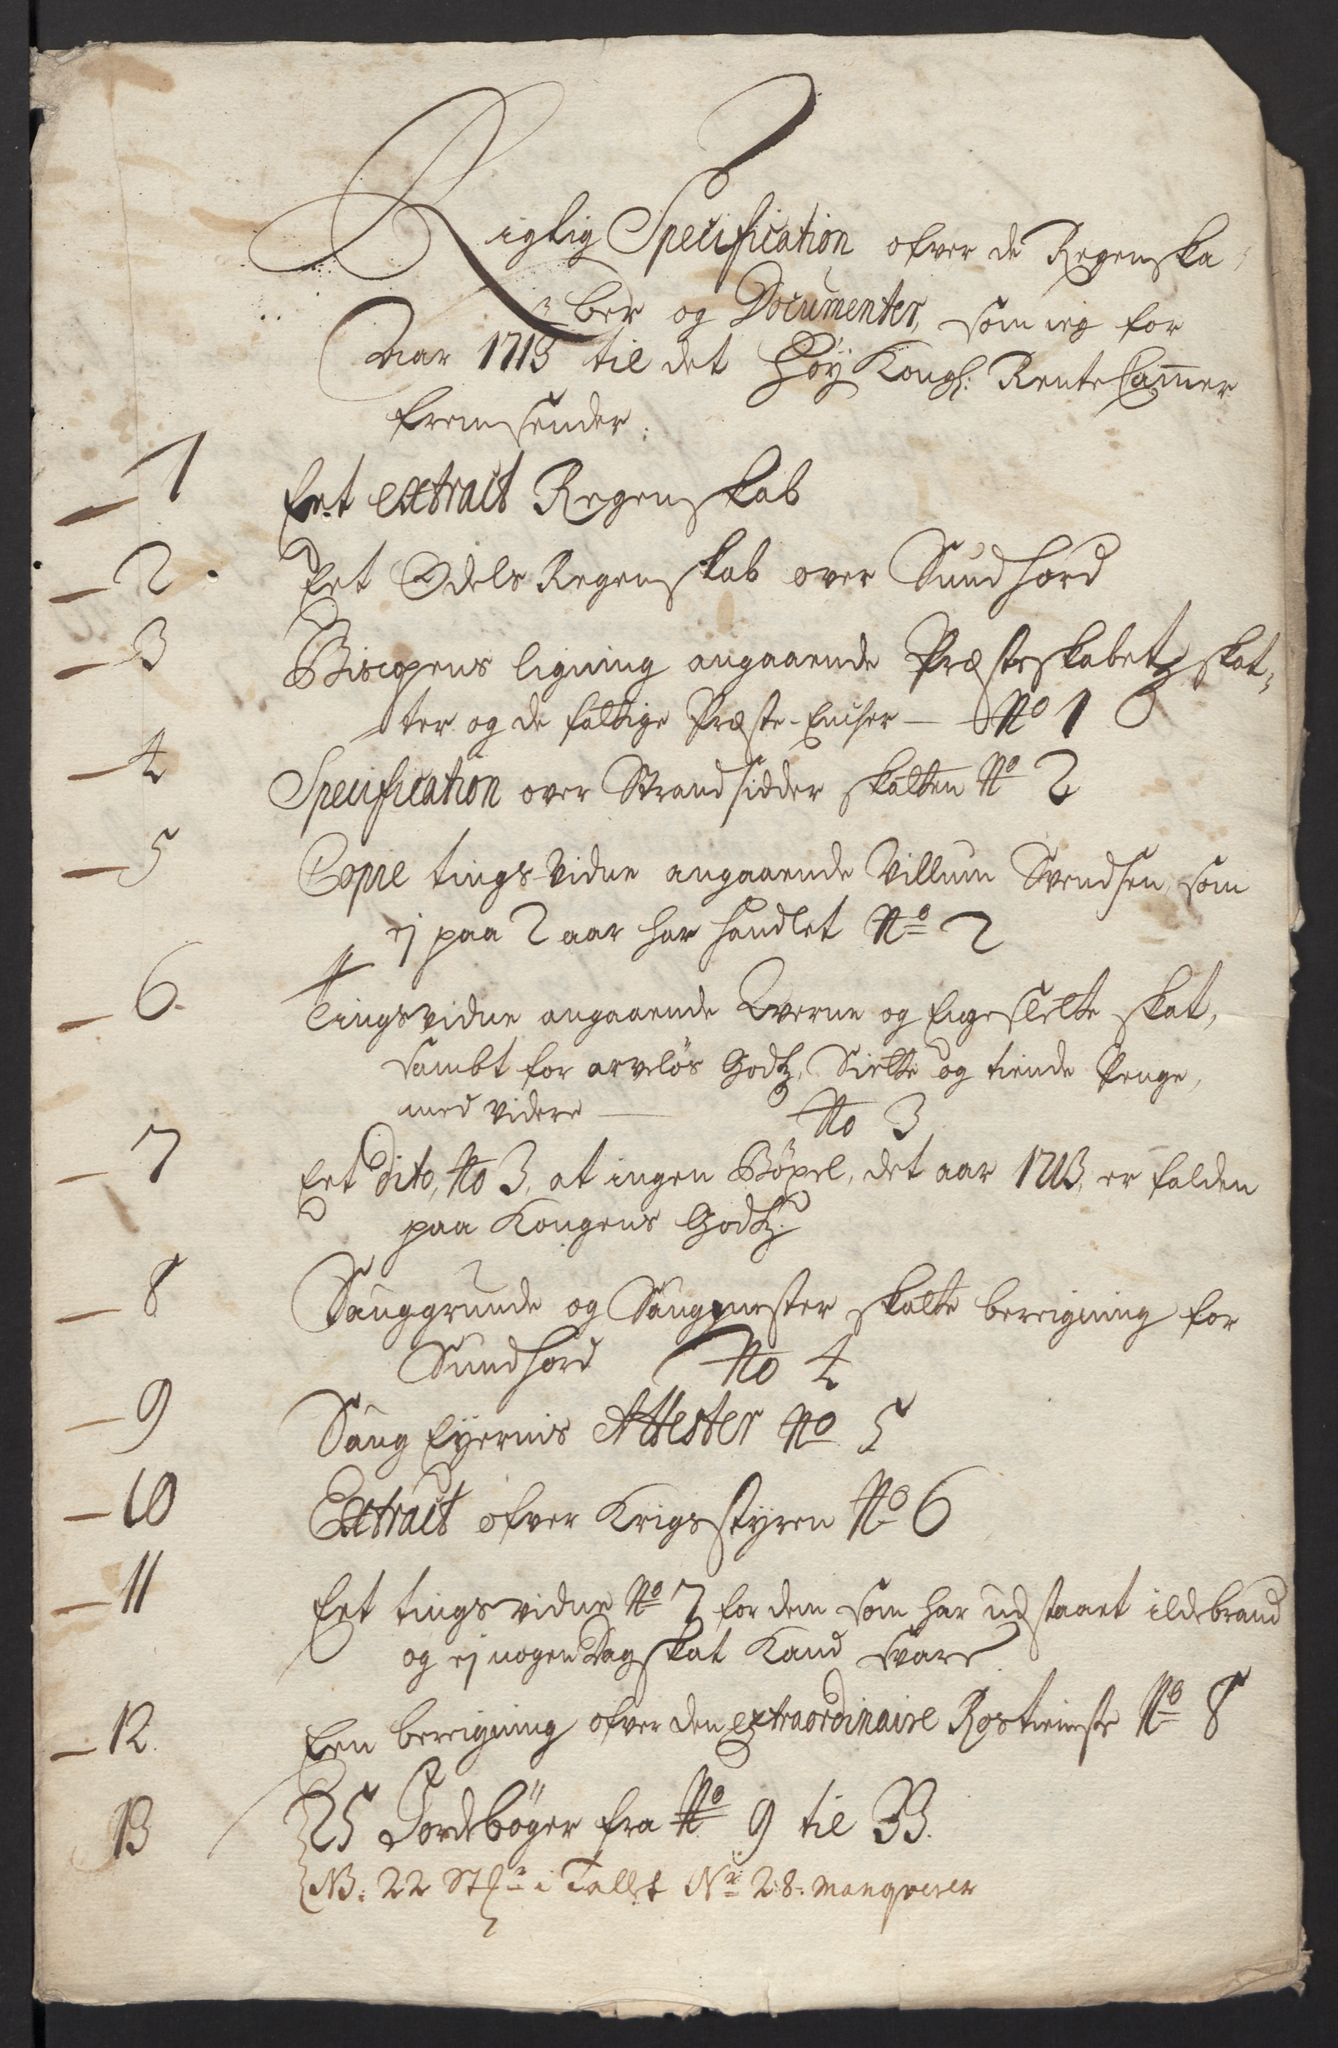 Rigtig Specification ofver de Regenska-
ber og Documenter, som ieg for
Aar 1713 til det Høy Kongl: Rente Cammer
fremsender:
1 Eet extract Regenskab
2 Eet Odels Regenskab over Sundhord
3 Biscopens ligning angaaende Præsteskabetz skat-
ter og de fattige Præste-Encher — No 1
4 Specification over Strandsidder skatten No 2
5 Copie tings-Vidne angaaende Villum Svendsen, som
ej paa 2 aar har handlet No 2
6. Tingsvidne angaaende Qverne og Eigeslette skat,
sambt for arveløs Godtz, Siette og tiende Penge,
med videre — No 3
7 Eet dito, No 3, at ingen Bøxel, det aar 1713, er falden
paa Kongens Godtz.
8 Saug grunde og Saug mester skatte beregning for
Sundhord No 4
9 Saug Eyernis Attester No 5
10 Extract ofver Krigsstyren No 6
11 Eet tingsvidne No 7 for dem som har udstaaet ildebrand
og ej nogen Dag skat kand svare
12. Een beregning ofver den extraordinaire Rostieniste No 8
13 25 Jordebøger fra No 9 til 33.
NB: 22 St i Tallet Nr 28: manqverer